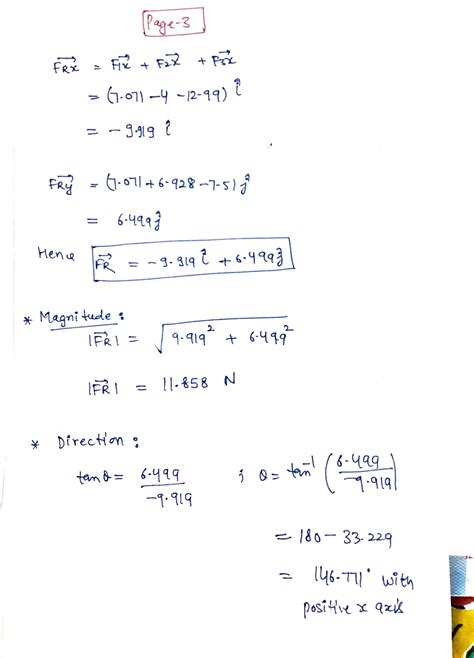 Page-3
F⃗Rx = F⃗1x + F⃗2x + F⃗3x
= (7.071 -4 -12.99) î
= -9.919 î
F⃗Ry = (7.071+6.928-7.5) ĵ
= 6.499 ĵ
Hence F⃗R = -9.919 î + 6.499 ĵ
* Magnitude :
|F⃗R| = √(9.919² + 6.499²)
|F⃗R| = 11.858 N
* Direction :
tanθ = 6.499/-9.919 ; θ = tan⁻¹ (6.499/-9.919)
= 180 - 33.229
= 146.771° with
positive x axis